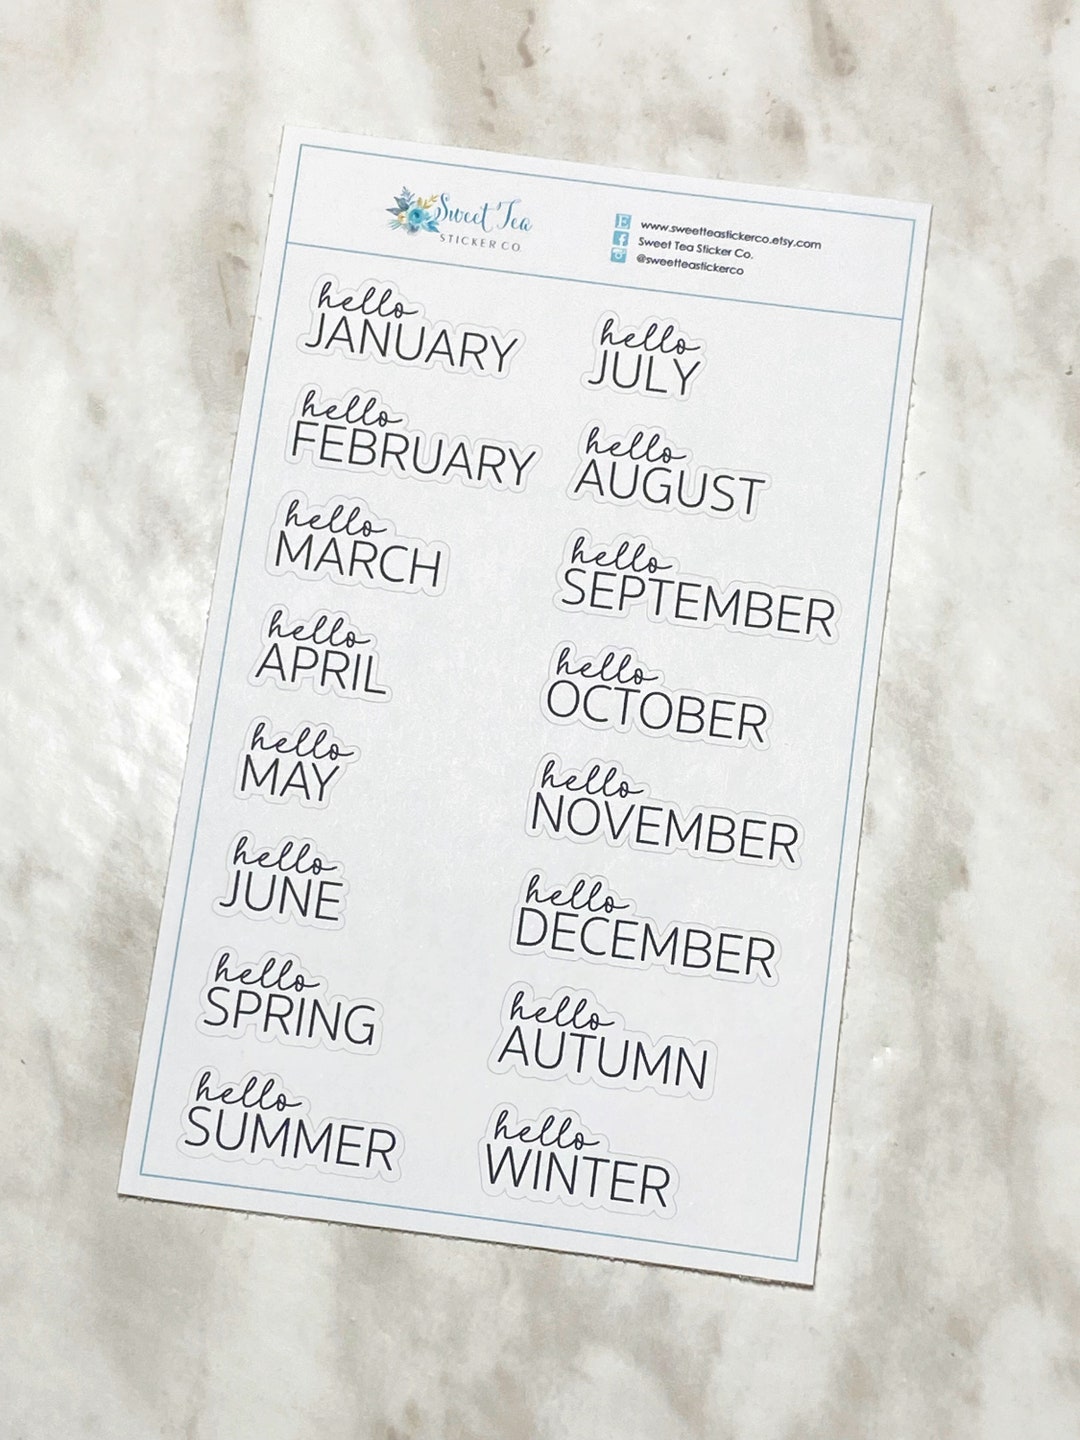 Sweet Tea
STICKER CO.
www.sweetteastickerco.etsy.com
Sweet Tea Sticker Co.
@sweetteastickerco
hello
JANUARY
hello
FEBRUARY
hello
MARCH
hello
APRIL
hello
MAY
hello
JUNE
hello
SPRING
hello
SUMMER
hello
JULY
hello
AUGUST
hello
SEPTEMBER
hello
OCTOBER
hello
NOVEMBER
hello
DECEMBER
hello
AUTUMN
hello
WINTER